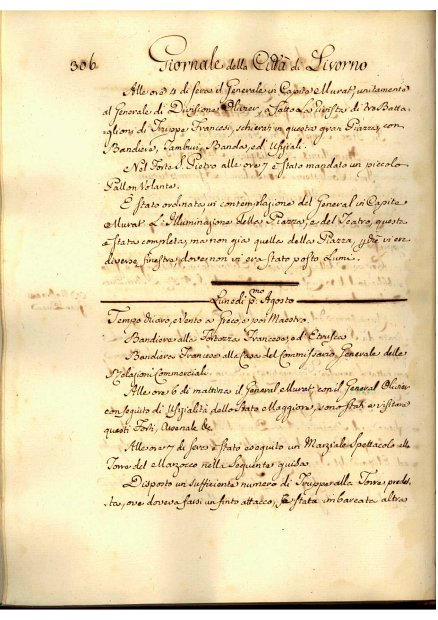 306 Giornale della Città di Livorno
Alle ore 4 di sera il Generale in Capite Murat, unitamente
al Generale di Divisione Olivier, à fatto la rivista di tre Batta-
glioni di Truppe Francesi, schierati in questa gran Piazza, con
Bandiere, Tamburi, Banda, ed Ufiziali.
Nel Forte S. Pietro alle ore 7 è stato mandato un piccolo
Pallon Volante.
È stato ordinata in contemplazione del General in Capite
Murat L'Illuminazione della Piazza, e del Teatro, questa
è stata completa, ma non già quella della Piazza, vi ere
diverse finestre dove non vi era stato posto Lumi.
Lunedì p.mo Agosto
Tempo chiaro, e Vento a Greco, e poi Maestro
Bandiere alla Fortezza Francese, ed Etrusca
Bandiera Francese alla Casa del Commissario Generale delle
Relazioni Commerciali
Alle ore 6 di mattina il General Murat, con il General Olivier
con seguito di Ufizialità dello Stato Maggiore, sono stati a visitare
questi Forti, Arsenale &c.
Alle ore 7 di sera è stato eseguito un Marziale Spettacolo alla
Torre del Marzocco nella Seguente guisa
Disposto un sufficiente numero di Truppe alla Torre predet-
ta, ove doveva farsi un finto attacco, è stata imbarcata altra